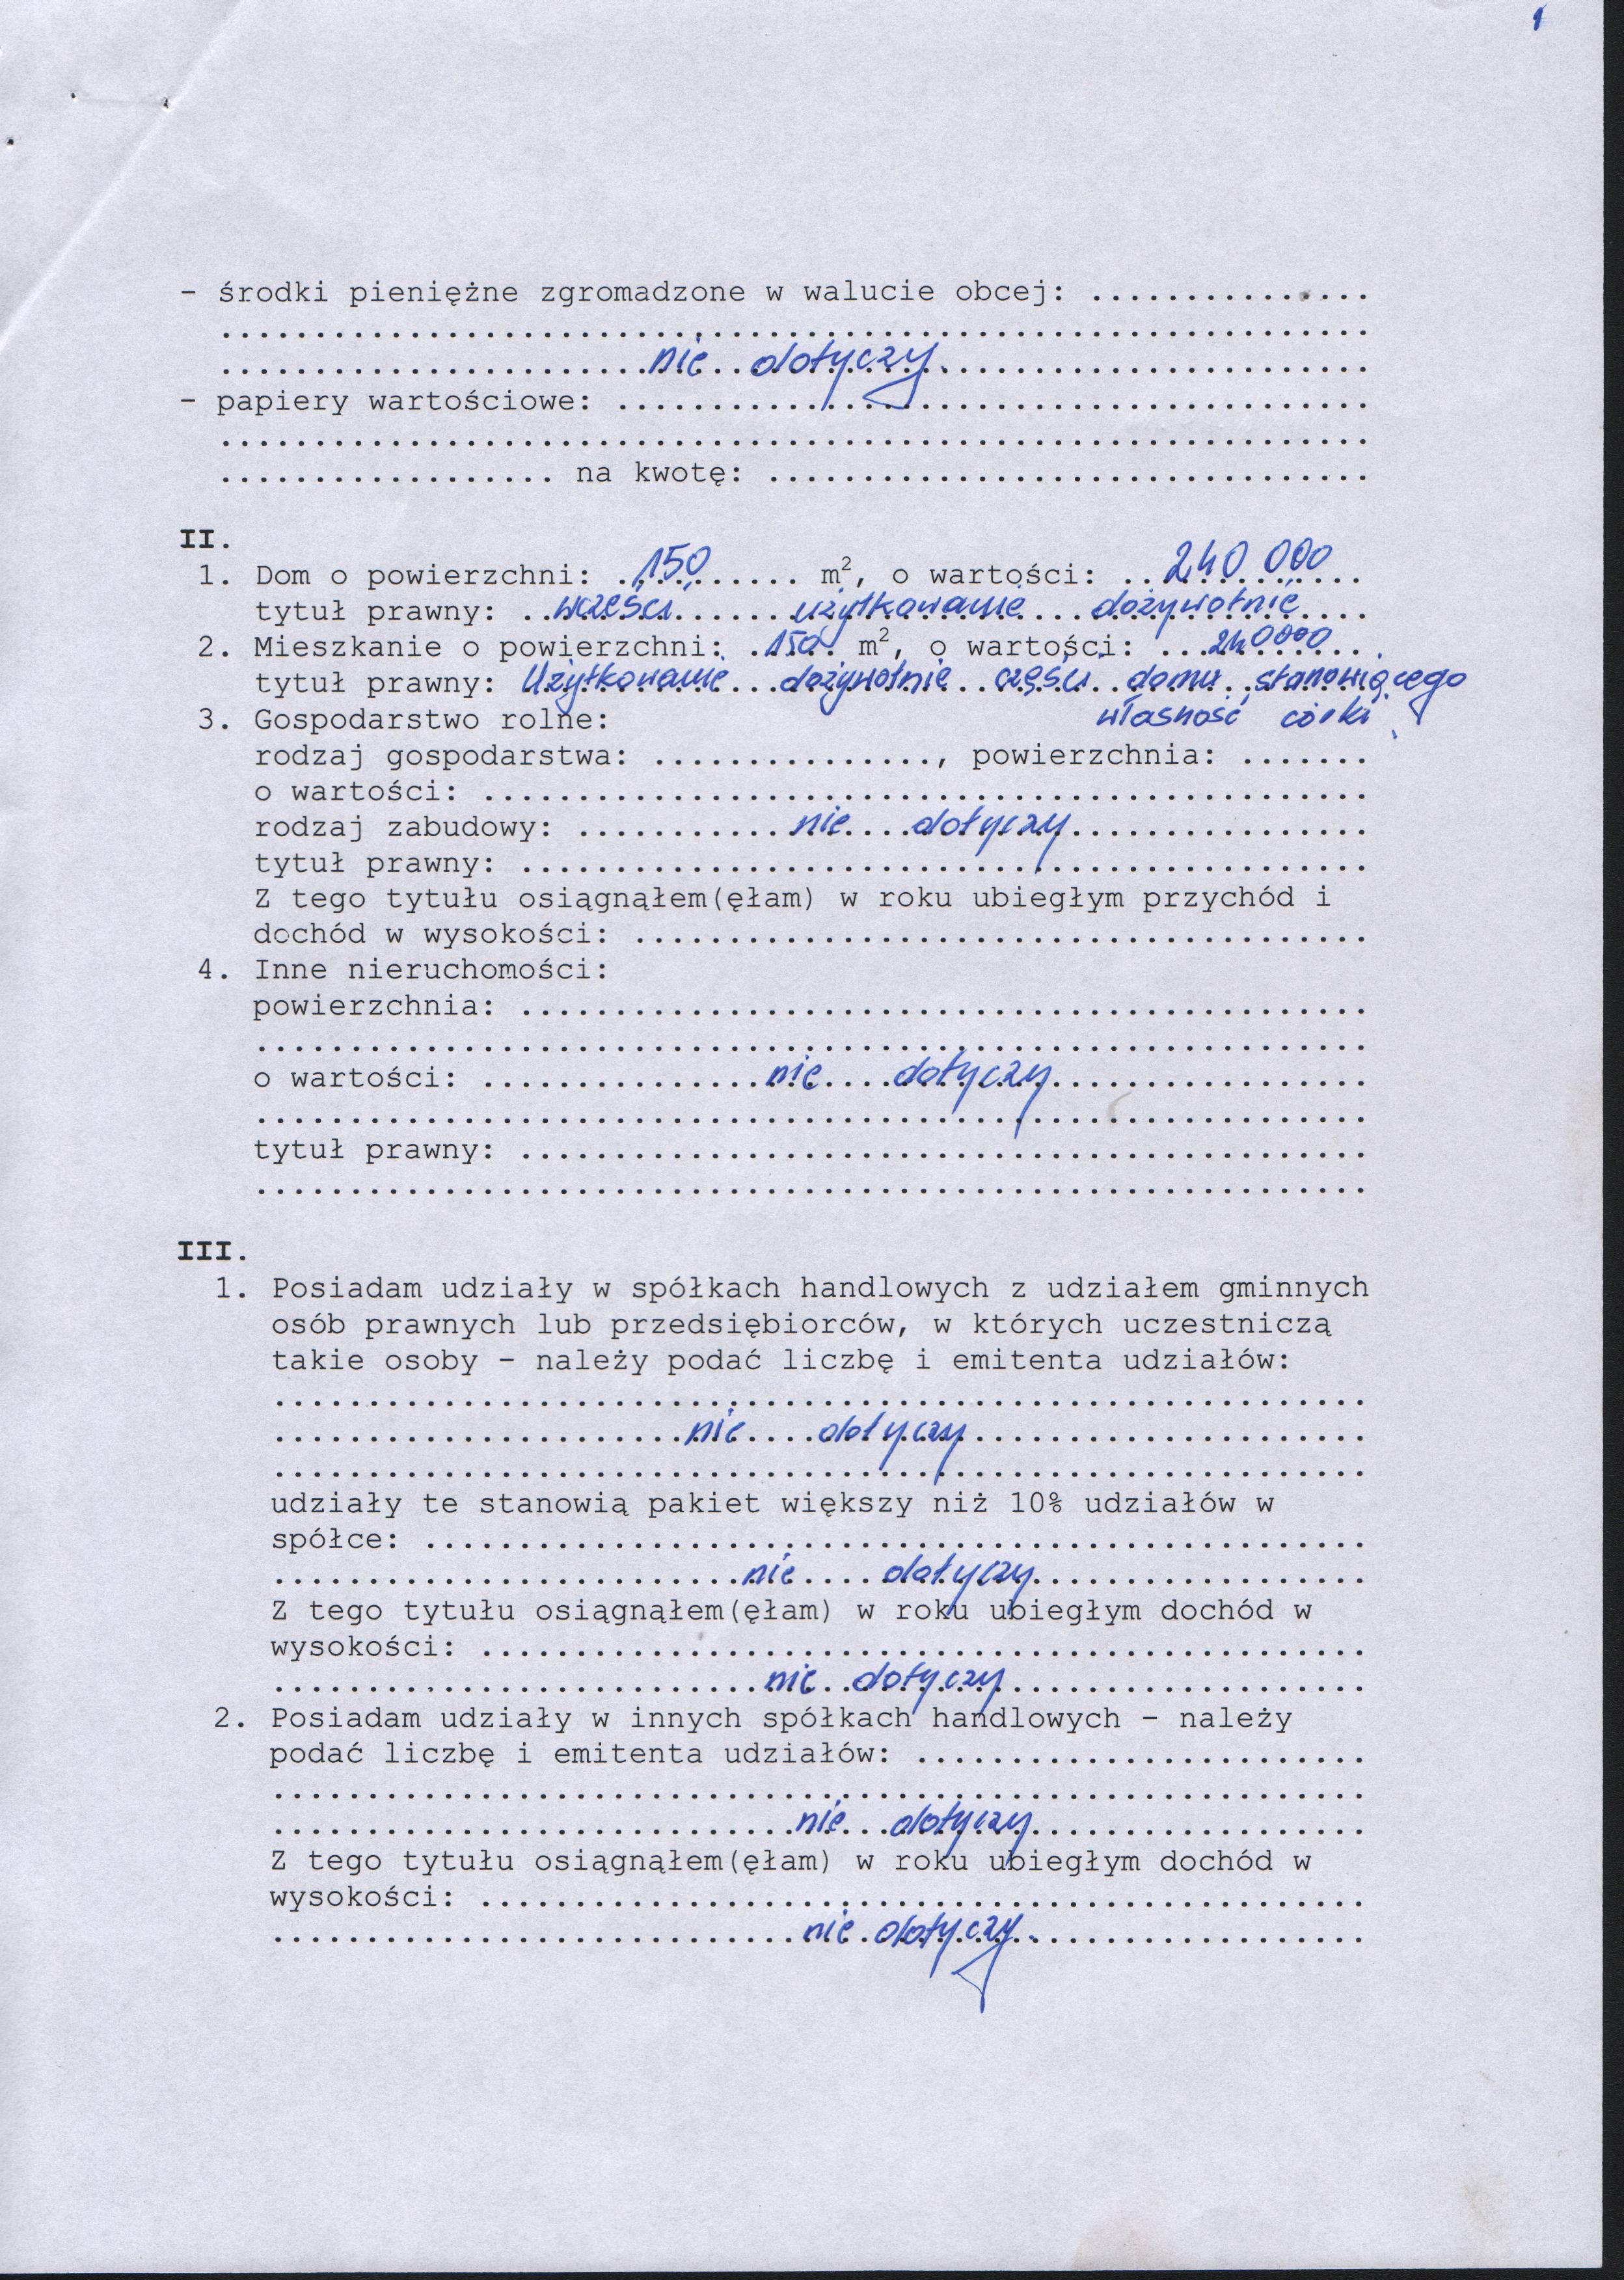 1
- środki pieniężne zgromadzone w walucie obcej: ...............
.............................................................
.......................nie..dotyczy.......................
- papiery wartościowe: ........................................
.............................................................
.................. na kwotę: ................................
II.
1. Dom o powierzchni: ..150....... m², o wartości: ..240 000..
tytuł prawny: ..w części.......użytkowanie...dożywotnie....
2. Mieszkanie o powierzchni: .150. m², o wartości: ...240000...
tytuł prawny: Użytkowanie...dożywotnie..części..domu..stanowiącego
własność córki
3. Gospodarstwo rolne:
rodzaj gospodarstwa: ..............., powierzchnia: .......
o wartości: ...............................................
rodzaj zabudowy: ............nie....dotyczy................
tytuł prawny: .............................................
Z tego tytułu osiągnąłem(ęłam) w roku ubiegłym przychód i
dochód w wysokości: .......................................
4. Inne nieruchomości:
powierzchnia: .............................................
...........................................................
o wartości: ...............nie....dotyczy.................
...........................................................
tytuł prawny: .............................................
...........................................................
III.
1. Posiadam udziały w spółkach handlowych z udziałem gminnych
osób prawnych lub przedsiębiorców, w których uczestniczą
takie osoby - należy podać liczbę i emitenta udziałów:
..........................................................
......................nie....dotyczy.....................
..........................................................
udziały te stanowią pakiet większy niż 10% udziałów w
spółce: ..................................................
.........................nie....dotyczy..................
Z tego tytułu osiągnąłem(ęłam) w roku ubiegłym dochód w
wysokości: ...............................................
..........................nie..dotyczy...................
2. Posiadam udziały w innych spółkach handlowych - należy
podać liczbę i emitenta udziałów: ........................
..........................................................
............................nie...dotyczy..................
Z tego tytułu osiągnąłem(ęłam) w roku ubiegłym dochód w
wysokości: ...............................................
............................nie.dotyczy...................